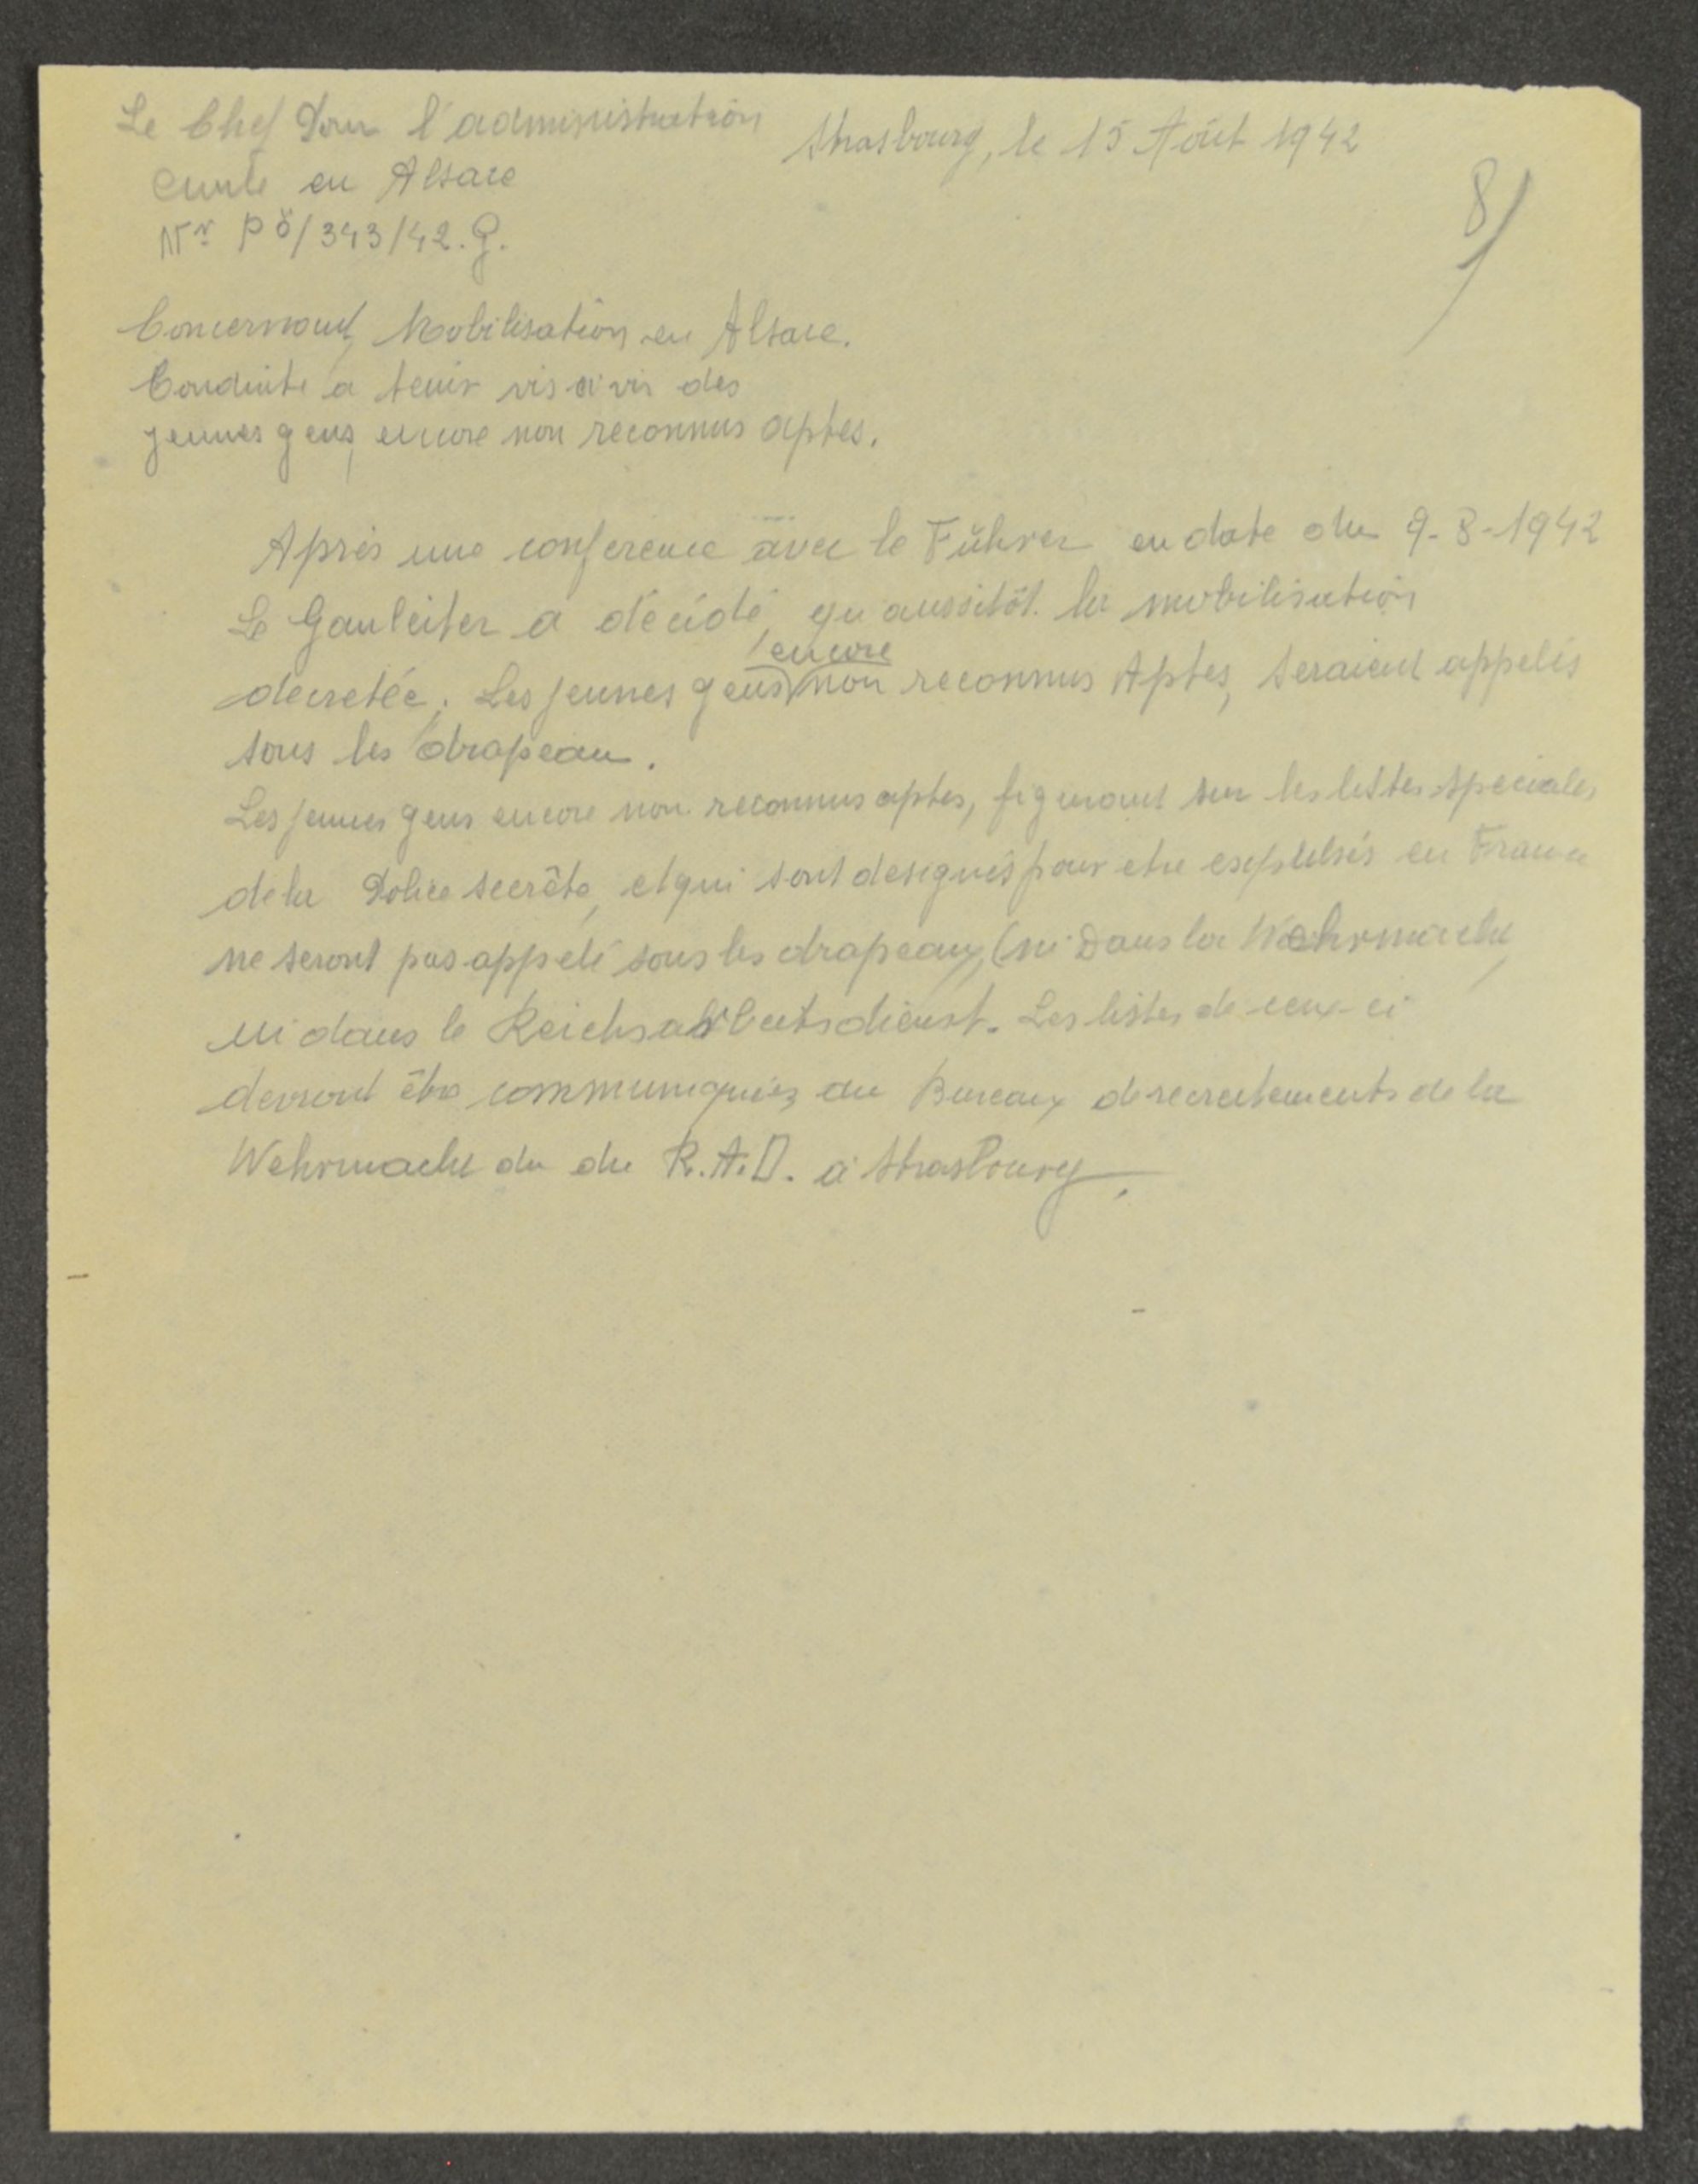 Le Chef Pour l'administration
Civile en Alsace
Strasbourg, le 15 Aôut 1942
Nr Pö/343/42.G.
8/
Concernant, Mobilisation en Alsace.
Conduite a tenir vis a vis des
jeunes gens, encore non reconnus aptes.
Après une conference avec le Führer en date du 9-8-1942
Le Gauleiter a décidé, qu aussitôt la mobilisation
encore
decretée; Les jeunes gens non reconnus Aptes, seraient appelés
sous les drapeau.
Les jeunes gens encore non reconnus aptes, figurant sur les listes speciales
de la Police secrète, et qui sont designés pour etre expulsés en France
ne seront pas appelé sous les drapeaux, (ni Dans la Wehrmacht,
ni dans le Reichsarbeitsdienst. Les listes de ceux-ci
devront être communiquées au Bureaux de recrutements de la
Wehrmacht du du R.A.D. a Strasbourg.